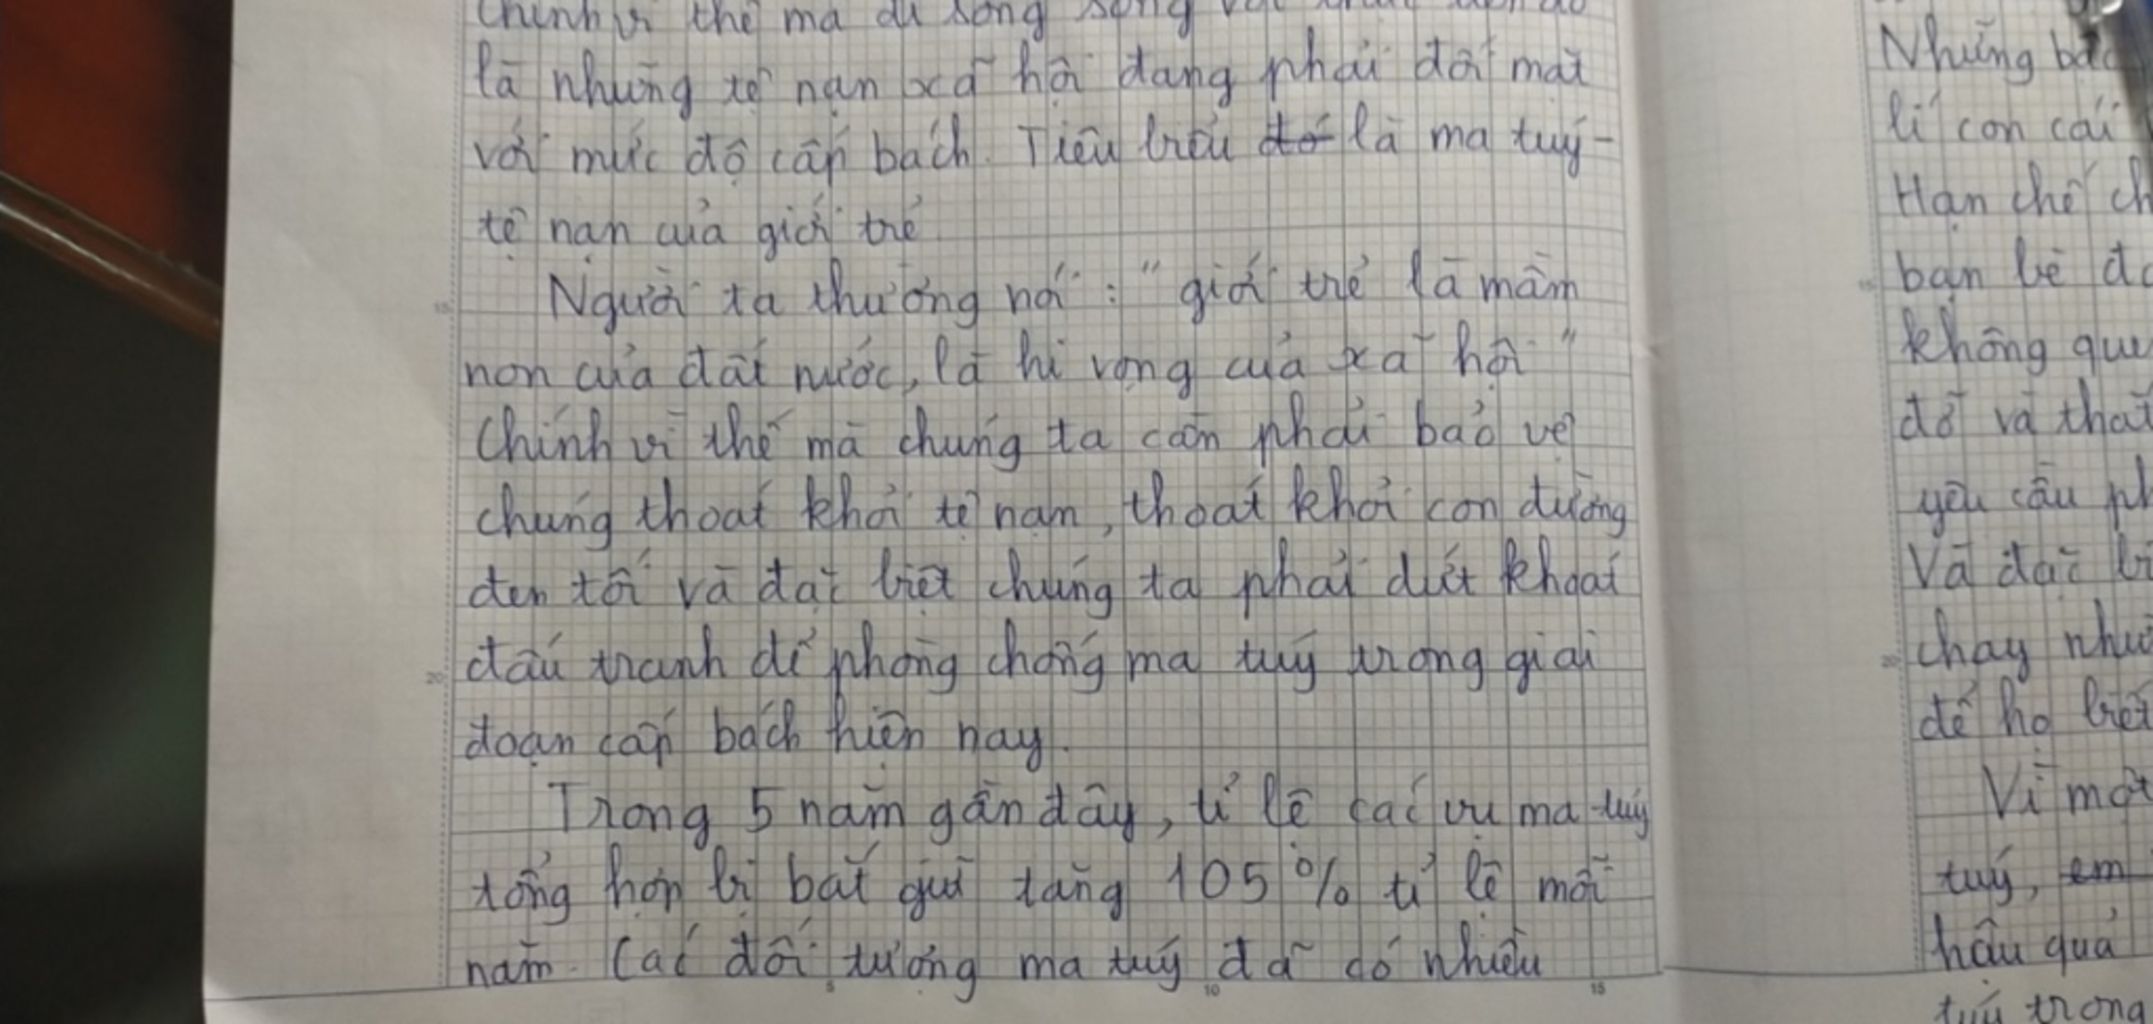 Chính vì thế mà đi song song với
là những tệ nạn xã hội đang phải đối mặt
với mức độ cấp bách. Tiêu biểu đó là ma tuý -
tệ nạn của giới trẻ
Người ta thường nói : " giới trẻ là mầm
non của đất nước, là hi vọng của xã hội "
Chính vì thế mà chúng ta cần phải bảo vệ
chúng thoát khỏi tệ nạn, thoát khỏi con đường
đen tối và đặt biệt chúng ta phải dứt khoát
đấu tranh để phòng chống ma tuý trong giai
đoạn cấp bách hiện nay.
Trong 5 năm gần đây, tỉ lệ các vụ ma tuý
tổng hợp bị bắt giữ tăng 105 % tỉ lệ mỗi
năm. Các đối tượng ma tuý đã có nhiều
Những
lí con cái
Hạn chế
bạn bè
không
đỡ và
yêu cầu
Và
chạy
để họ
Vì một
tuý, em
hậu quả
tuý trong